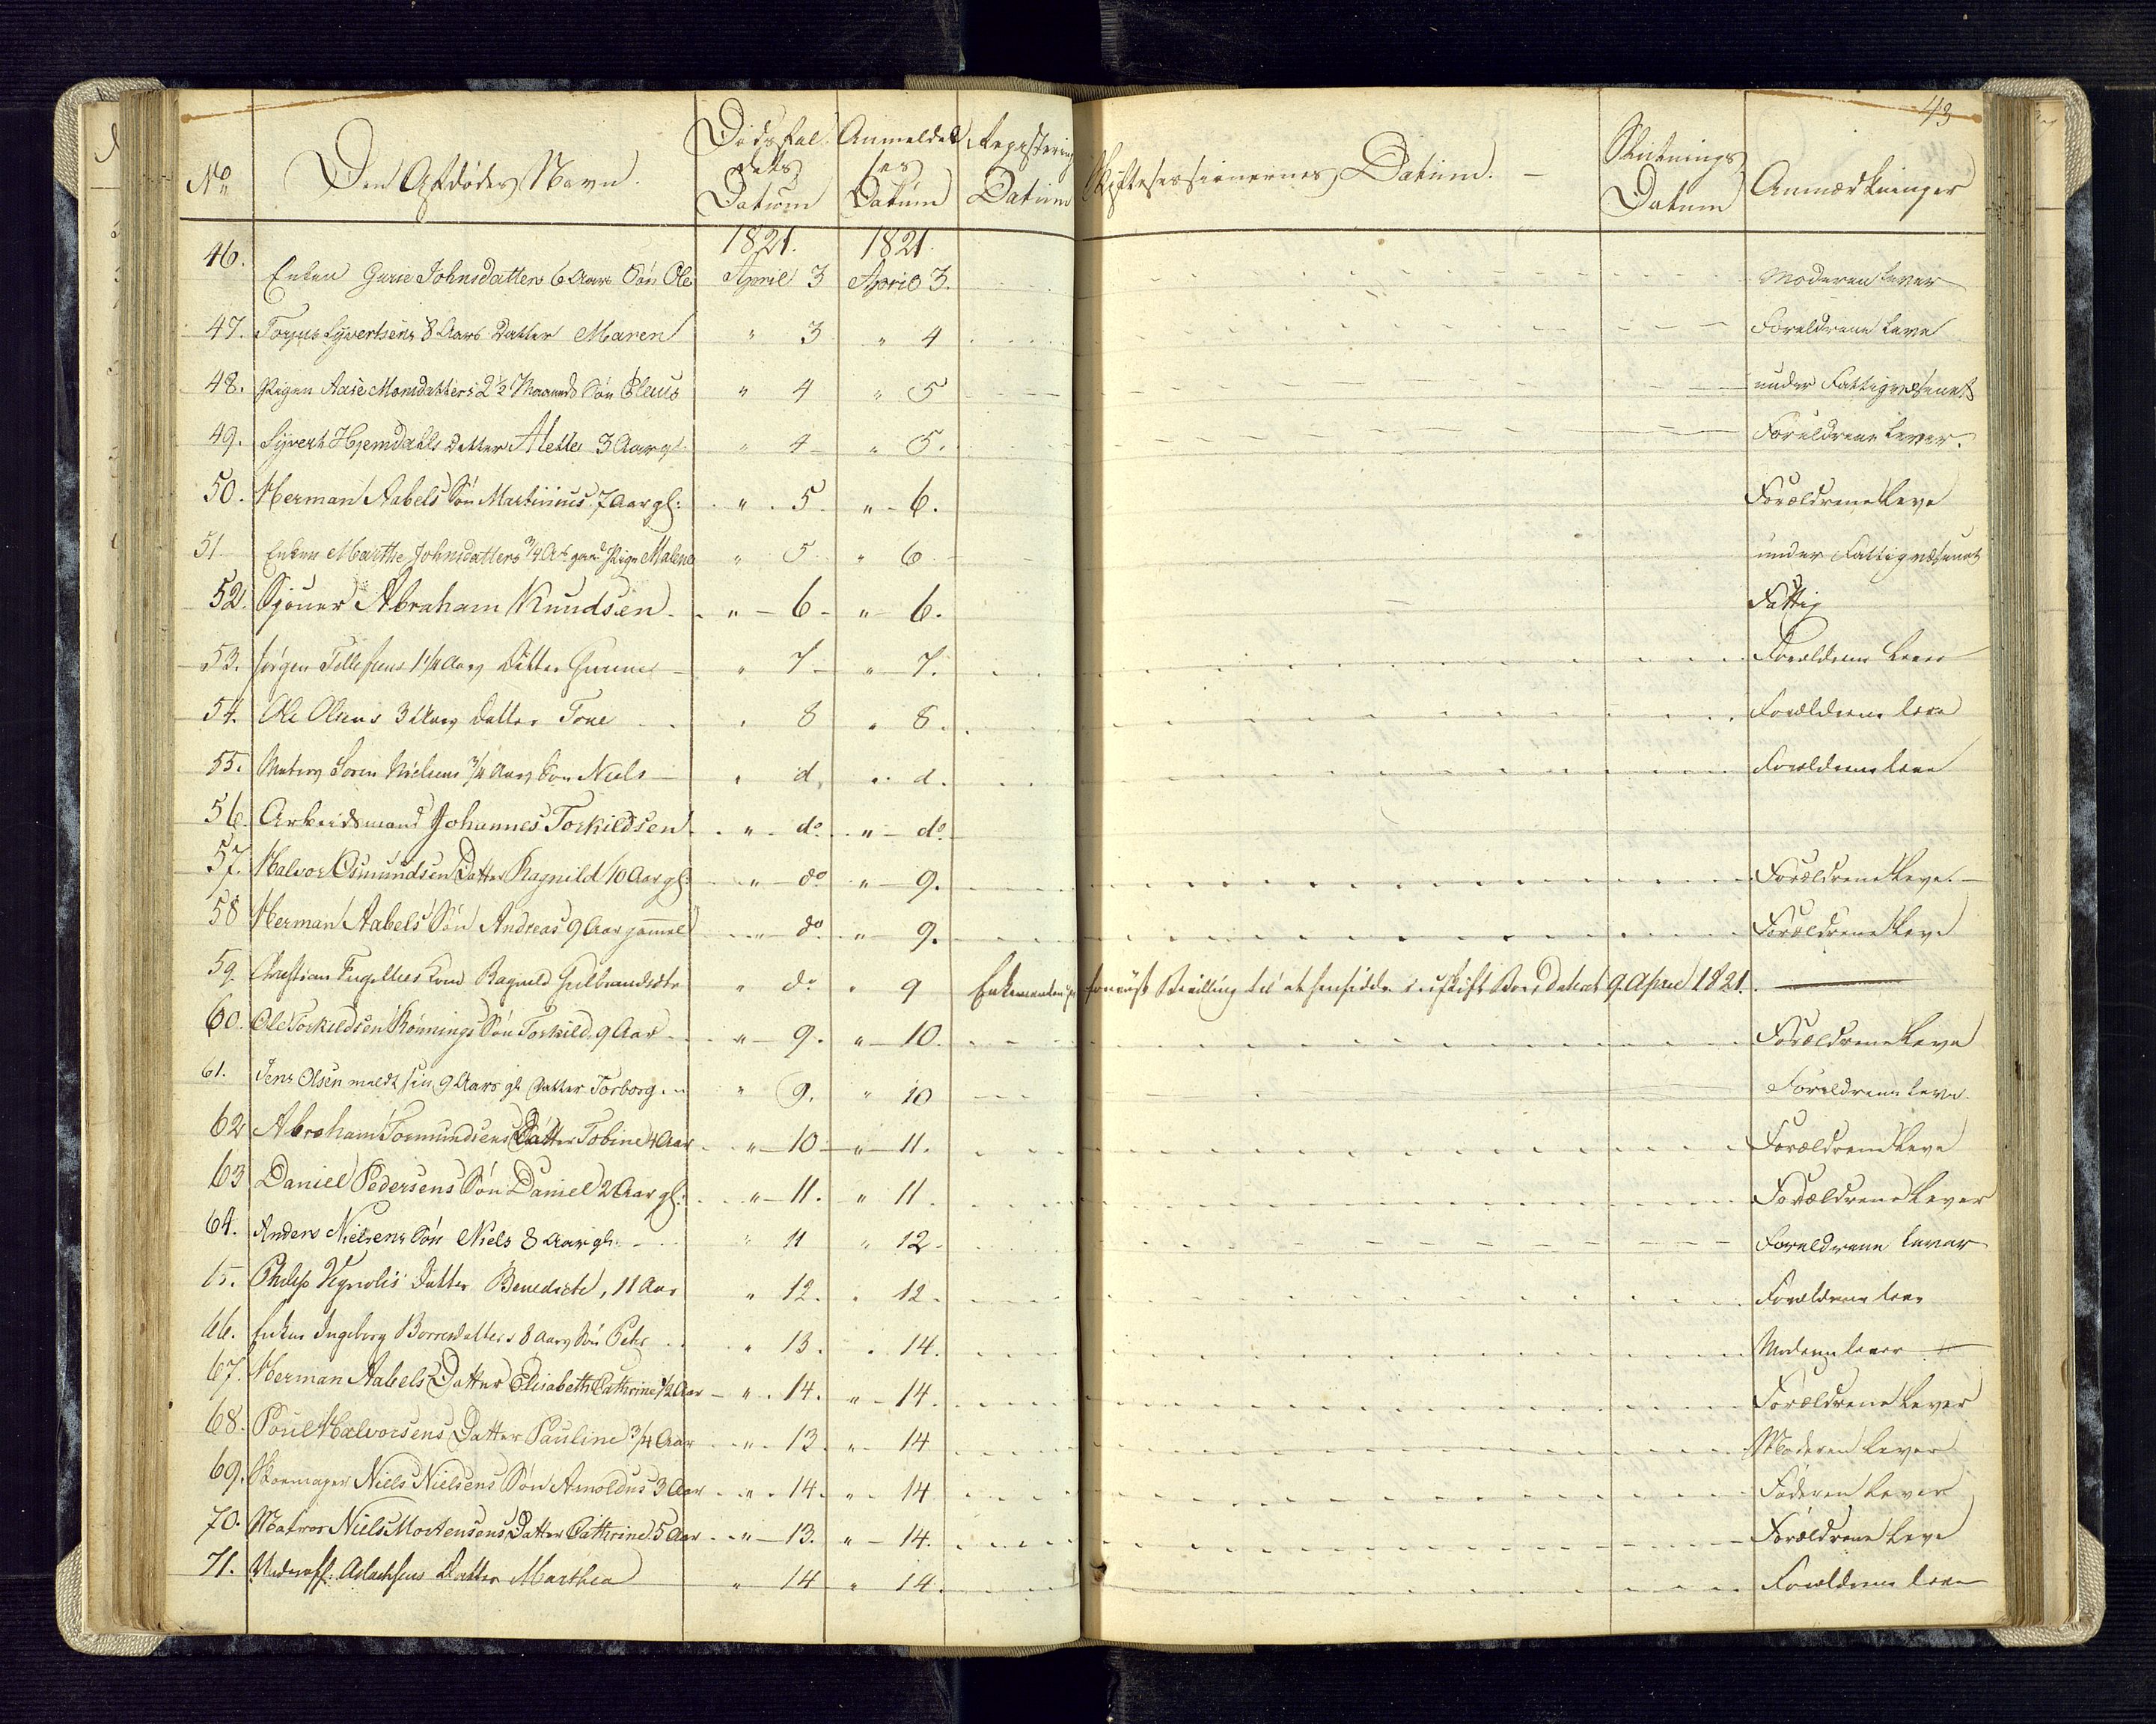 43
No Den Afdødes Navn. Dødsfaldets Datum Anmeldelses Datum Registrerings Datum Skiftesessionernes Datum. Slutnings Datum Anmærkninger
1821. 1821.
46. Enken Gurie Johnsdatters 6 Aars Søn Ole April 3 April 3. Moderen lever
47. Syvertsens 8 Aars Datter Maren " 3 " 4 Foreldrene leve
48. Pigen Aase Monsdatters 2½ Maaneds Søn " 4 " 5 under Fattigvæsenet
49. Syvert Hjemdahls Datter Mette 3 Aar gl. " 4 " 5. Foreldrene lever.
50. Herman Aabels Søn Martinius 7 Aar gl: " 5 " 6. Forældrene leve
51 Enken Marthe Johnsdatters 3/4 Pige Malene " 5 " 6 under Fattigvæsenet
52. Sjouer Abraham Knudsen " 6 " 6. Fattig
53. Jørgen Tellefsens 1 1/4 Aars Datter Gunne " 7 " 7. Forældrene leve
54. Ole Olsens 3 Aars Datter Tone " 8 " 8. Forældrene leve
55. Matros Søren Nielsens 3/4 Aars Søn Niels " d. " d. Forældrene leve
56. Arbeidsmand Johannes Torkildsen " do. " do.
57. Halvor Osmundsen Datter Ragnild 10 Aar gl: " do " 9. Forældrene leve.
58 Herman Aabels Søn Andreas 9 Aar gammel " do. " 9. Forældrene leve
59. Christian Fugellies Kone Ragnild Gulbrandsdtr " do " 9 Enkemanden Bevilling til at hensidde i uskift Boe, dateret 9 April 1821.
60. Ole Torkildsen Rønnings Søn Torkild, 9 Aar " 9. " 10. Forældrene leve
61. Jens Olsen meldt sin 9 Aars gl. Datter Torborg " 9. " 10 Foreldrene leve.
62 Abraham Tormundsens Datter Tobine 4 Aar " 10 " 11. Forældrene leve
63 Daniel Pedersens Søn Daniel 2 Aar gl: " 11. " 11. Forældrene lever
64. Anders Nielsens Søn Niels 8 Aar gl: " 11 " 12. Foreldrene lever
65. Philip Vignolis Datter Benedicte, 11 Aar " 12. " 12. Forældrene leve
66. Enken Ingeborg Børresdatters 8 Aars Søn Peter " 13. " 14. Moderen lever
67. Herman Aabels Datter Elisabeth Cathrine 1/2 Aar " 14. " 14. Forældrene lever
68. Poul Halvorsens Datter Pauline 3/4 Aar " 13. " 14 Moderen lever
69. Skomager Niels Nielsens Søn Arnoldus 3 Aar " 14. " 14 Faderen lever
70. Matros Niels Mortensens Datter Cathrine 5 Aar " 13. " 14. Forældrene leve
71. Underoff. Aslachsens Datter Marthea " 14 " 14. Forældrene leve